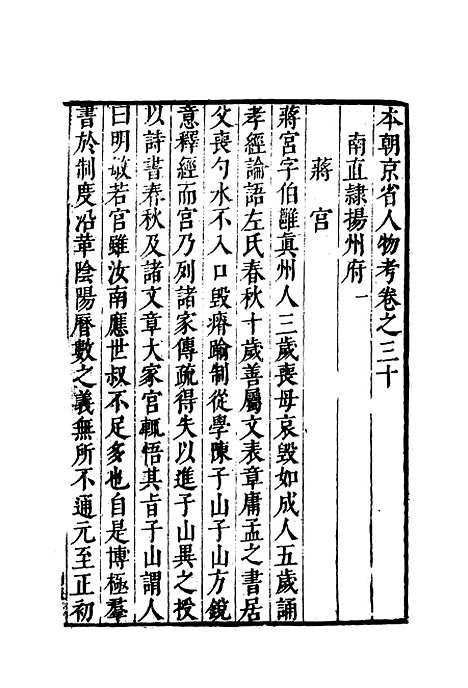 本朝京省人物考卷之三十
南直隸揚州府一
蔣宮
蔣宮字伯雝眞州人三歲喪母哀毀如成人五歲誦
孝經論語左氏春秋十歲善屬文表章庸孟之書居
父喪勺水不入口毀瘠踰制從學陳子山子山方鏡
意釋經而宮乃列諸家傳疏得失以進子山異之授
以詩書春秋及諸文章大家宮輒悟其旨子山謂人
曰明敏若宮雖汝南應世叔不足多也自是博極羣
書於制度沿革陰陽曆數之義無所不通元至正初